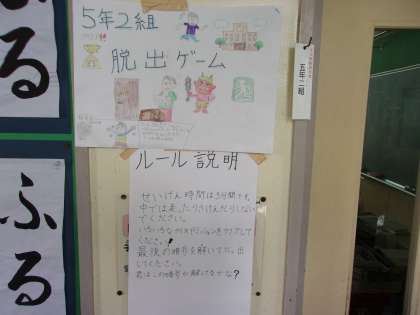 5年2組
脱出ゲーム
五年二組
ルール説明
せいげん時間は5分間です。
中では走ったりさけんだりしない
でください。
いろいろなミッションをクリアして
ください!
最後の暗号を解いて、脱出
してください。
君はこの暗号が解けるかな?
ふる
ふる